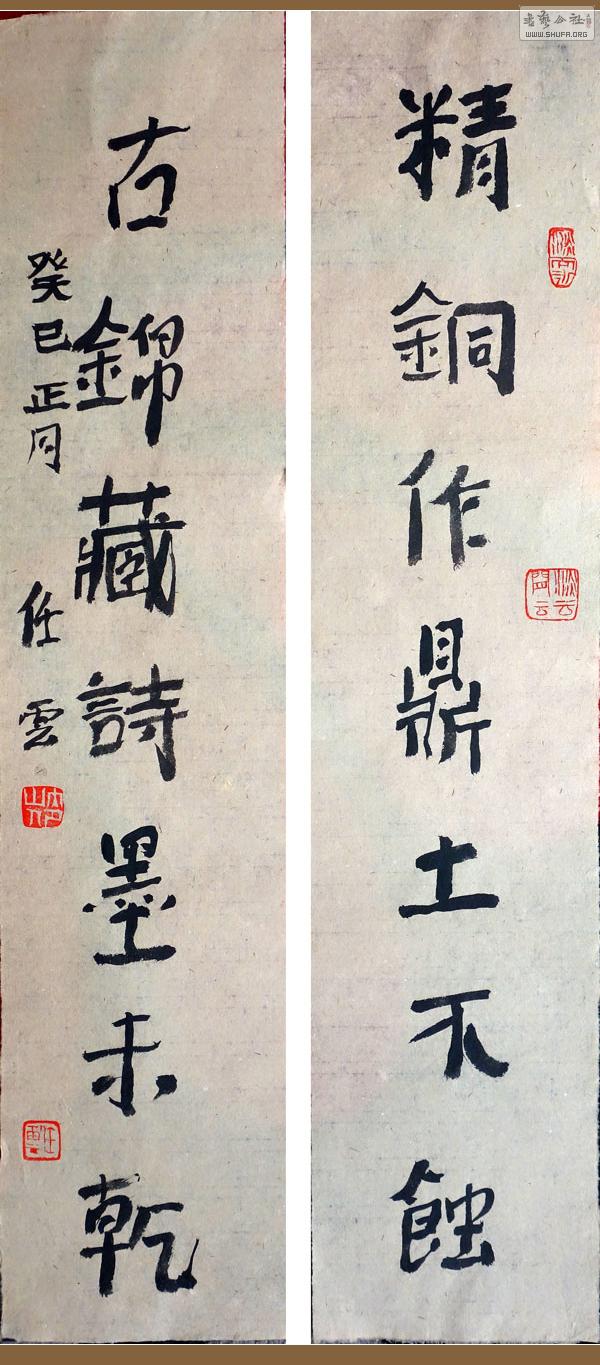 精銅作鼎土不蝕
古錦藏詩墨未乾
癸巳正月
任雲
书艺公社
WWW.SHUFA.ORG